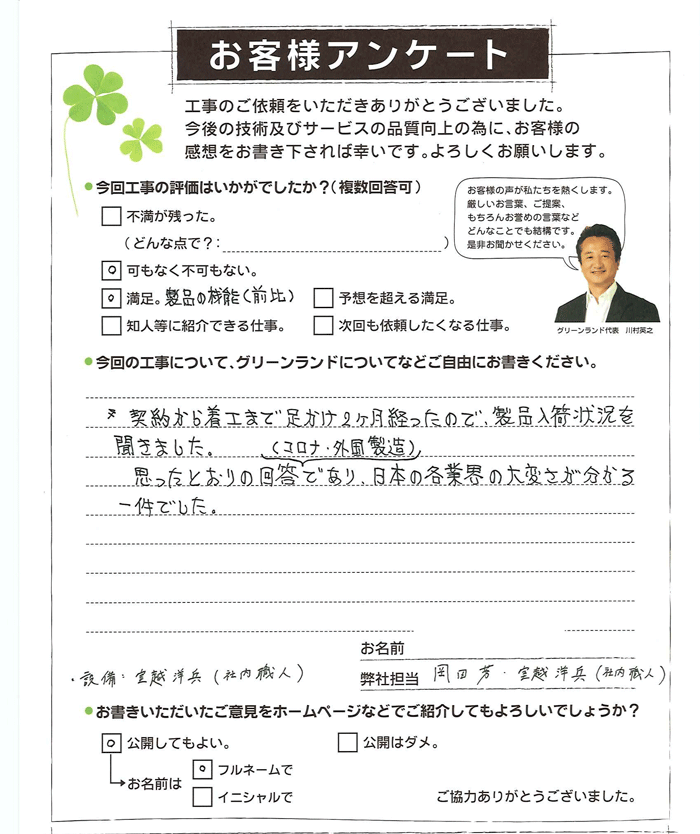 お客様アンケート
工事のご依頼をいただきありがとうございました。
今後の技術及びサービスの品質向上の為に、お客様の
感想をお書き下されば幸いです。よろしくお願いします。
今回工事の評価はいかがでしたか?(複数回答可)
不満が残った。
(どんな点で?: )
お客様の声が私たちを熱くします。
厳しいお言葉、ご提案、
もちろんお誉めの言葉など
どんなことでも結構です。
是非お聞かせください。
グリーンランド代表 川村英之
可もなく不可もない。
満足。製品の機能(前比)
予想を超える満足。
知人等に紹介できる仕事。
次回も依頼したくなる仕事。
今回の工事について、グリーンランドについてなどご自由にお書きください。
契約から着工まで足かけ2ヶ月経ったので、製品入荷状況を
聞きました。 (コロナ・外国製造)
思ったとおりの回答であり、日本の各業界の大変さが分かる
一件でした。
お名前
・設備:室越洋兵(社内職人)
弊社担当 岡田 芳・室越洋兵(社内職人)
お書きいただいたご意見をホームページなどでご紹介してもよろしいでしょうか?
公開してもよい。
公開はダメ。
お名前は
フルネームで
イニシャルで
ご協力ありがとうございました。